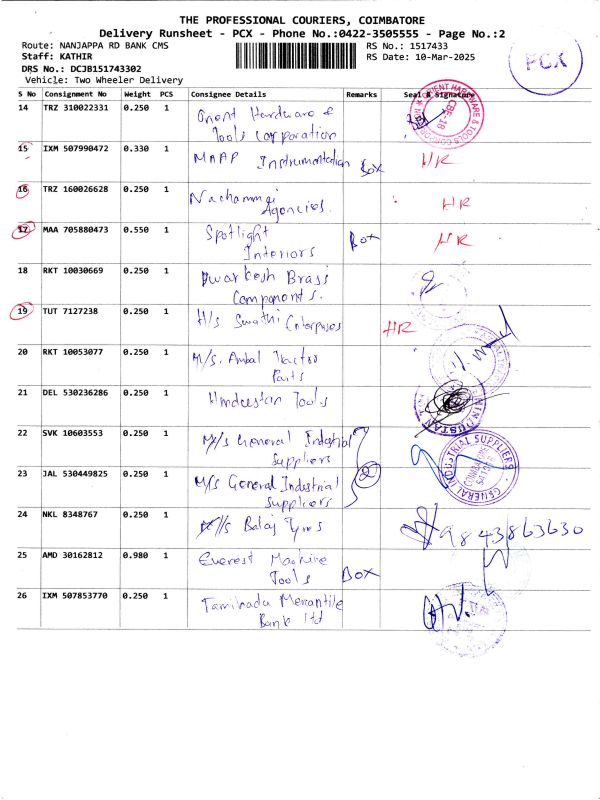 THE PROFESSIONAL COURIERS, COIMBATORE
Delivery Runsheet - PCX - Phone No.:0422-3505555 - Page No.:2
Route: NANJAPPA RD BANK CMS
RS No.: 1517433
Staff: KATHIR
RS Date: 10-Mar-2025
DRS No.: DCJB151743302
Vehicle: Two Wheeler Delivery
PCX
S No Consignment No Weight PCS Consignee Details Remarks Seal & Signature
14 TRZ 310022331 0.250 1 Orient Hardware &
Tools Corporation
ORIENT HARDWARE & TOOLS CORPORATION
CBE-18
15 IXM 507990472 0.330 1 MAAP Instrumentation Box HR
16 TRZ 160026628 0.250 1 Nachammai
Agencies. HR
17 MAA 705880473 0.550 1 Spotlight
Interiors Box HR
18 RKT 10030669 0.250 1 Dwarkesh Brass
Components.
19 TUT 7127238 0.250 1 H/s Swathi Enterprises HR
20 RKT 10053077 0.250 1 M/s. Ambal Tractor
Parts
21 DEL 530236286 0.250 1 Hindustan Tools
HINDUSTAN
22 SVK 10603553 0.250 1 M/s General Industrial
Suppliers
23 JAL 530449825 0.250 1 M/s General Industrial
Suppliers 2
GENERAL INDUSTRIAL SUPPLIERS
24 NKL 8348767 0.250 1 M/s Balaj Tyres 9843863630
25 AMD 30162812 0.980 1 Everest Machine
Tools Box
26 IXM 507853770 0.250 1 Tamilnadu Mercantile
Bank ltd